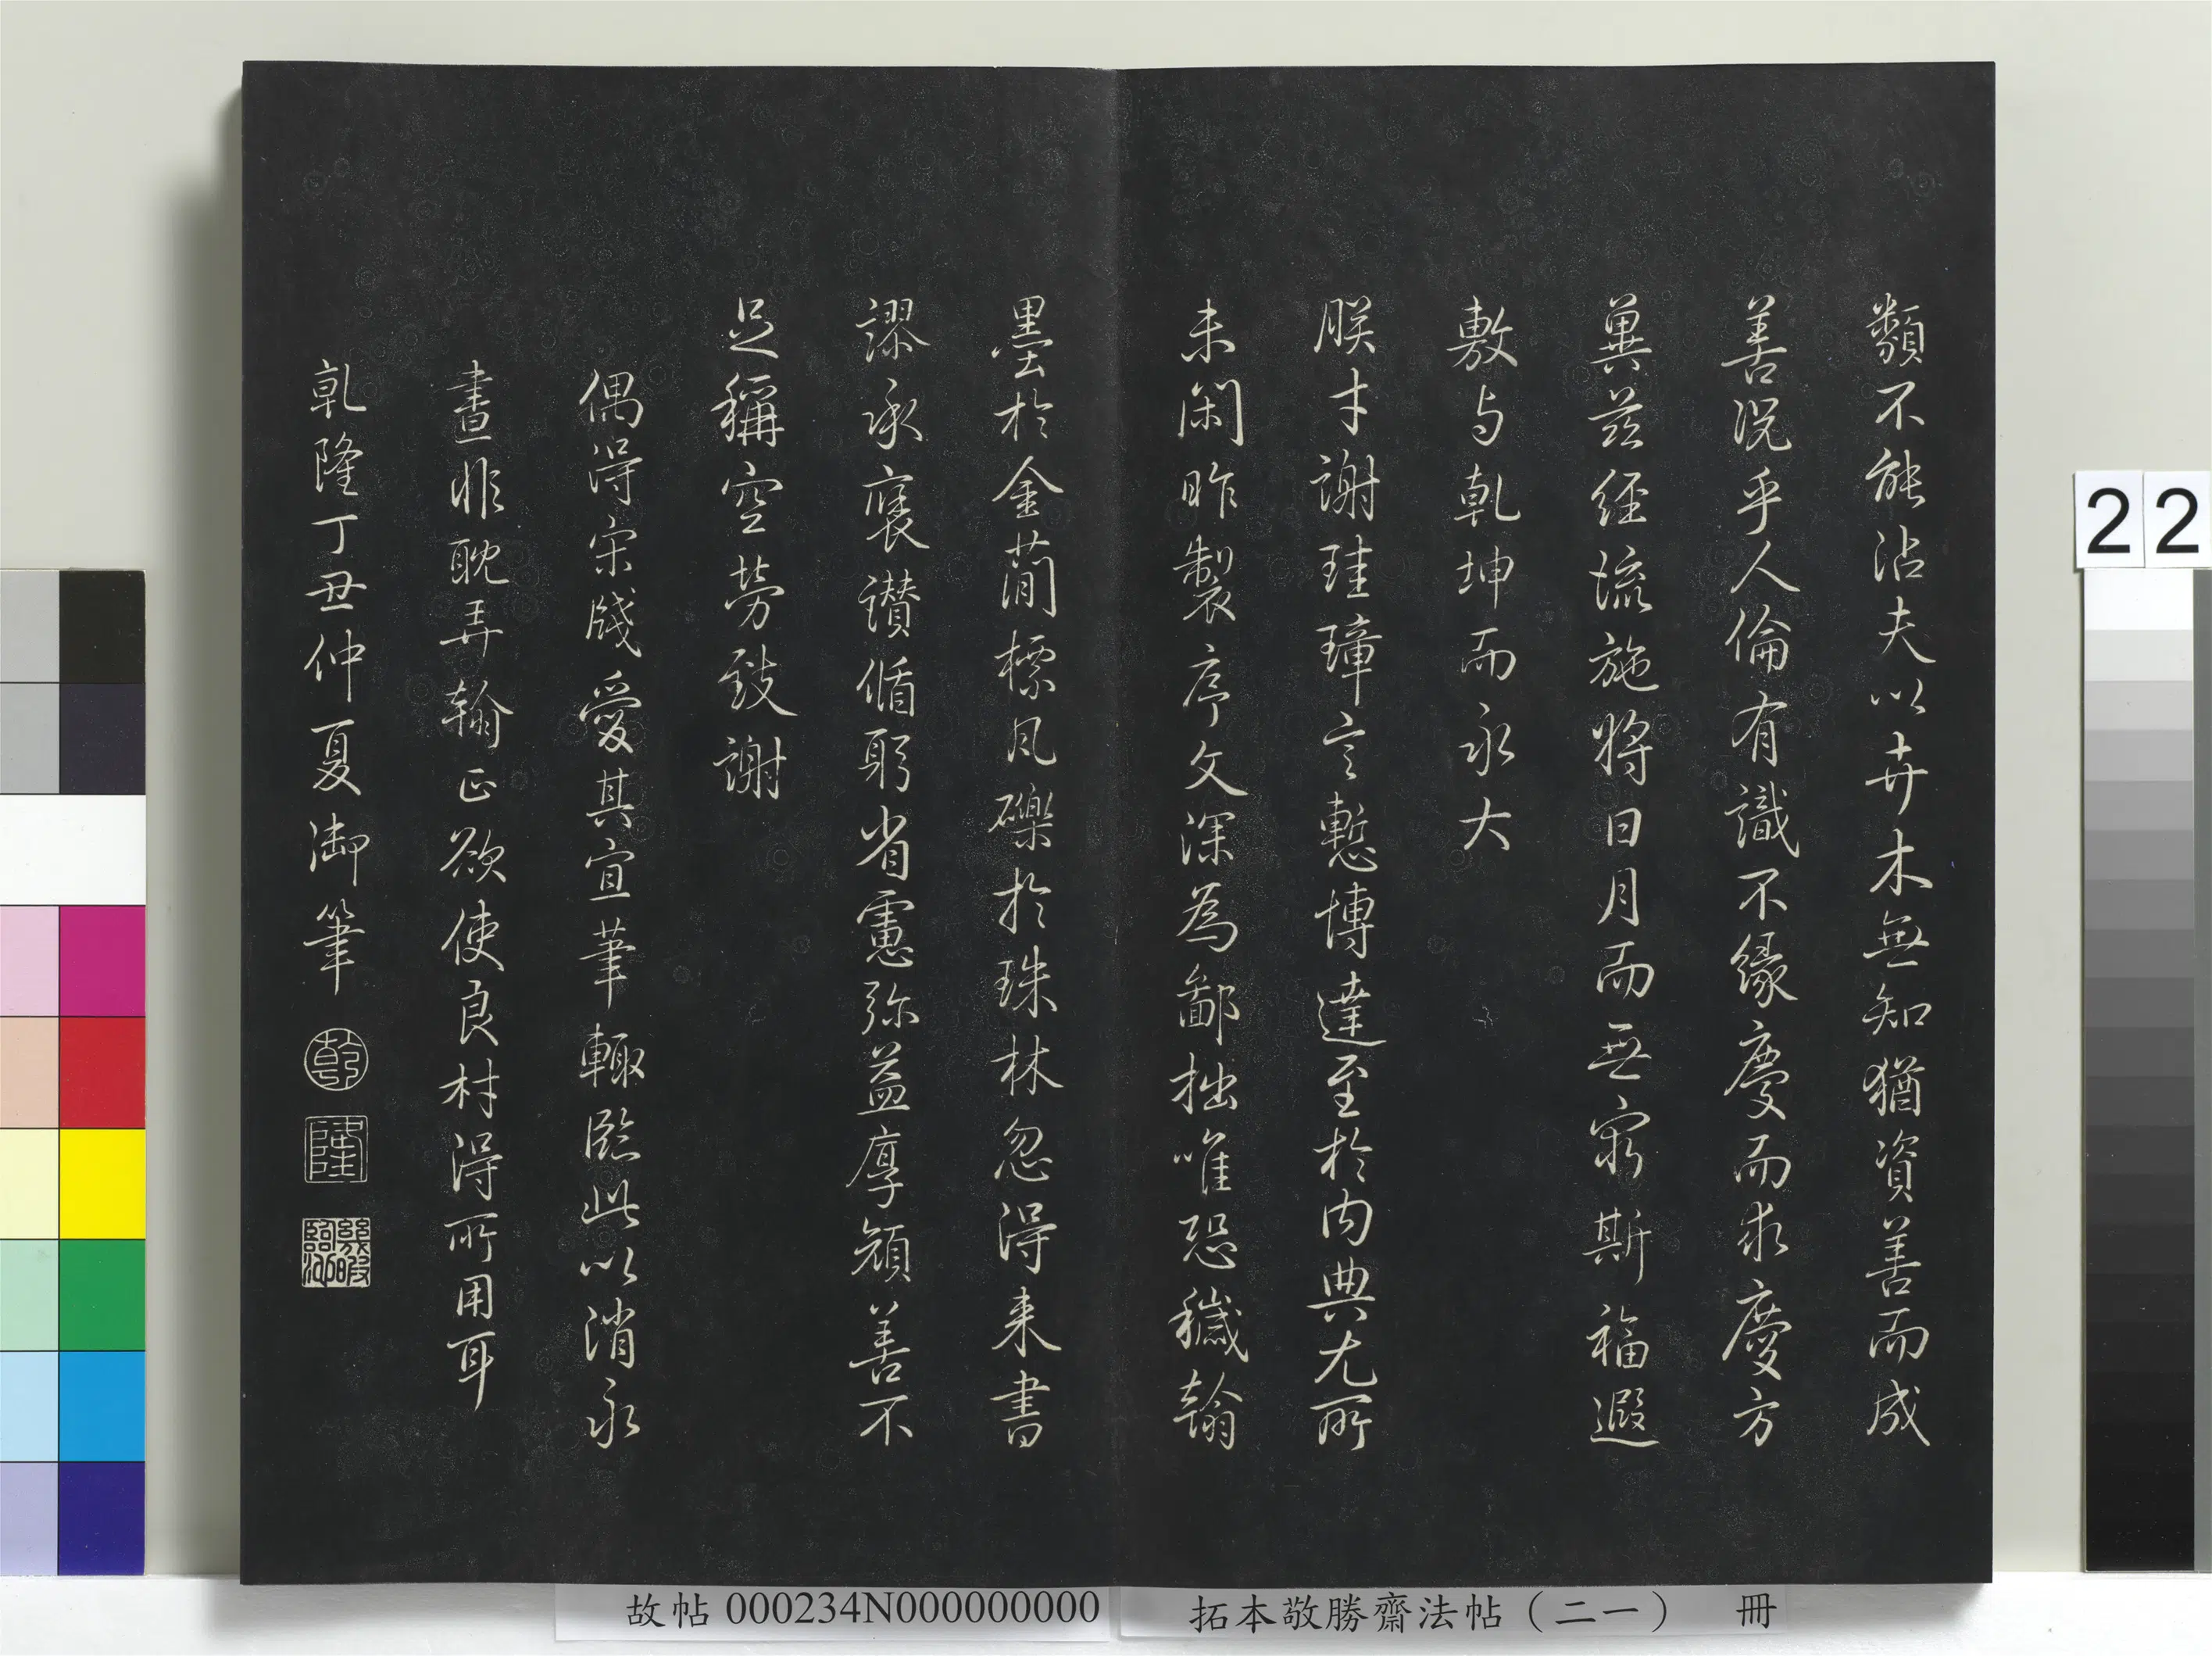 類不能沾夫以卉木無知猶資善而成
善況乎人倫有識不緣慶而求慶方
冀茲經流施將日月而無窮斯福遐
敷与乾坤而永大
朕才謝珪璋言慙博達至於內典尤所
未閑昨製序文深為鄙拙唯恐穢翰
墨於金蕳標瓦礫於珠林忽得来書
謬承襃讃循躬省慮弥益厚顏善不
足稱空勞致謝
偶得宋牋愛其宜筆輒臨此以消永
晝非耽弄翰正欲使良材得所用耳
乾隆丁丑仲夏御筆
乾
隆
幾暇
臨池
22
故帖 000234N000000000
拓本敬勝齋法帖（二一） 冊